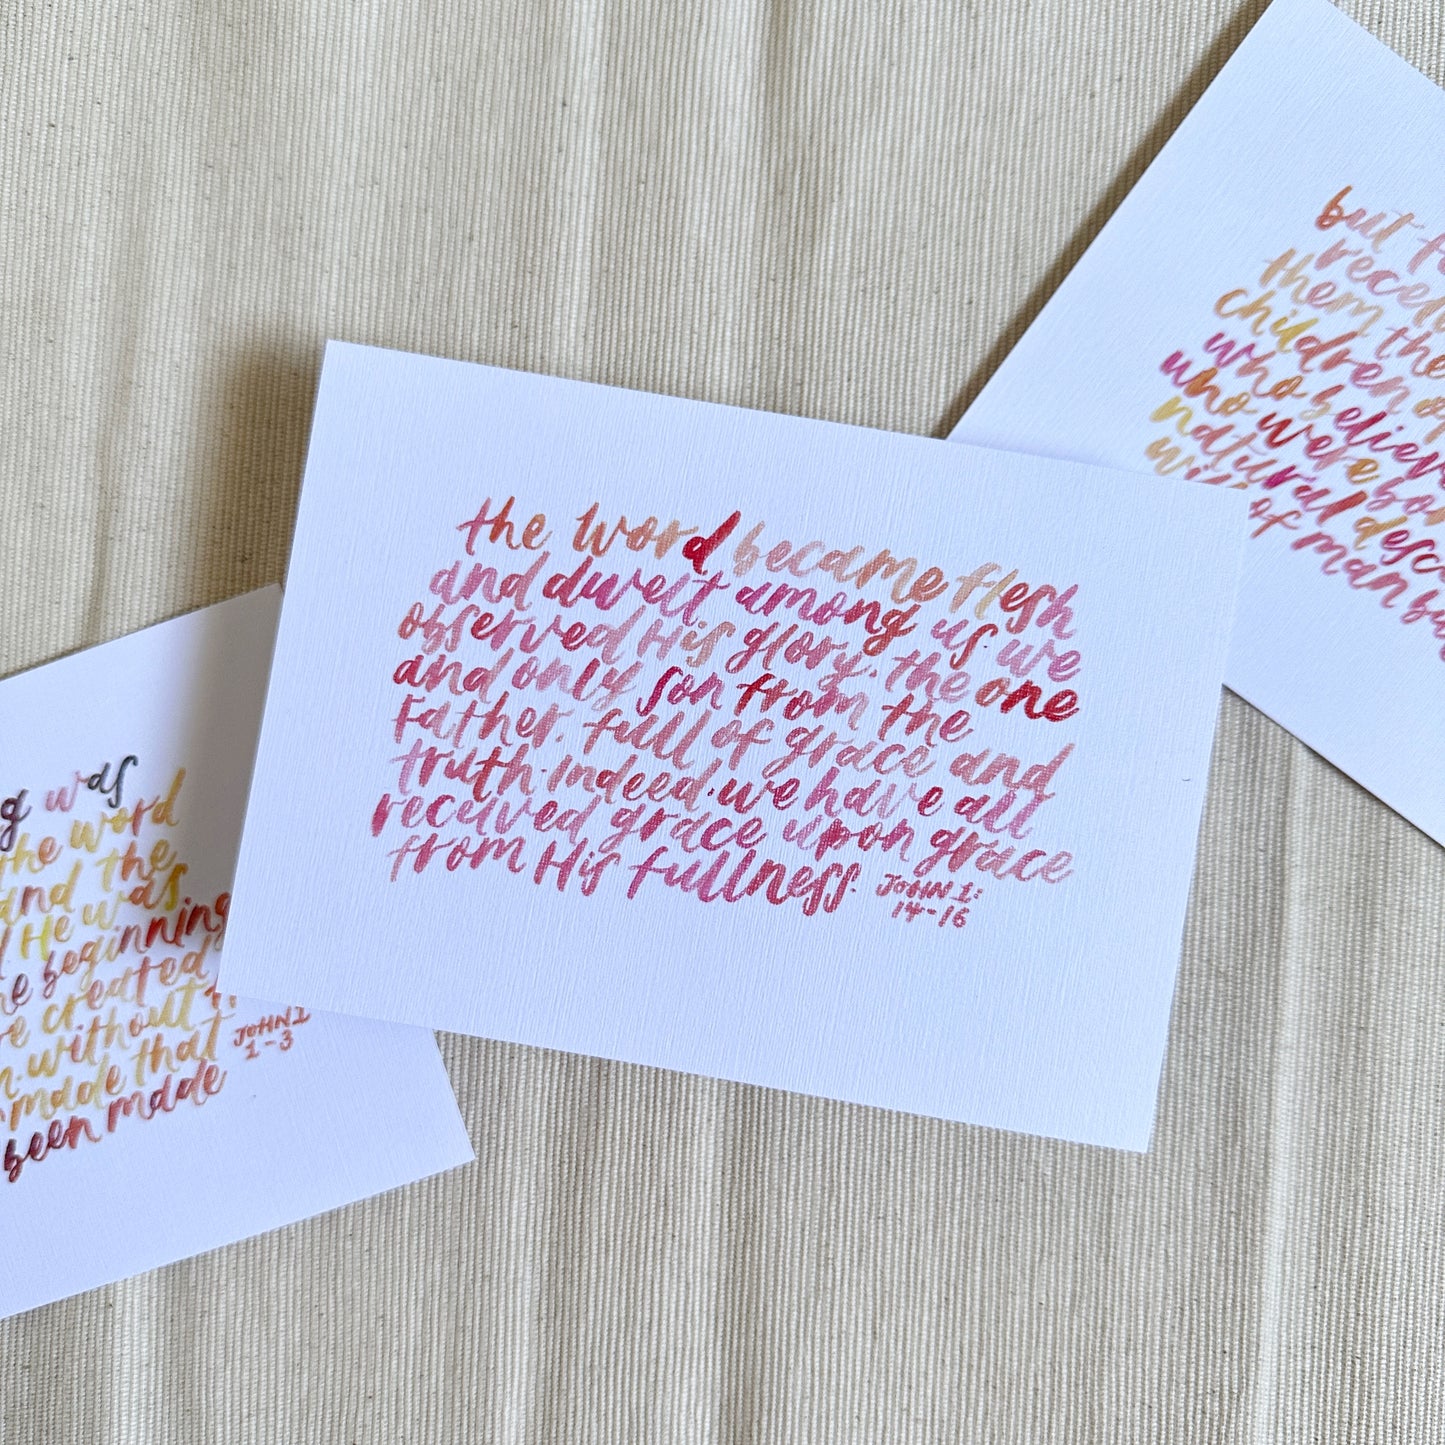 the Word became flesh
and dwelt among us. we
observed His glory. the one
and only son from the
Father. full of grace and
truth. Indeed. we have all
received grace upon grace
from His fullness.
JOHN 1:
14-16
was
the word
and the
He was
beginning
created
without
made that
been made
JOHN 1
1-3
but
them the
children of
who believe
who were
natural
will of man